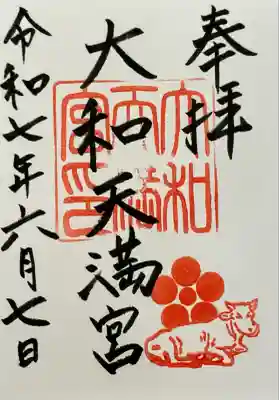 奉拝
大和天満宮
令和七年六月七日
大和
天満
宮印